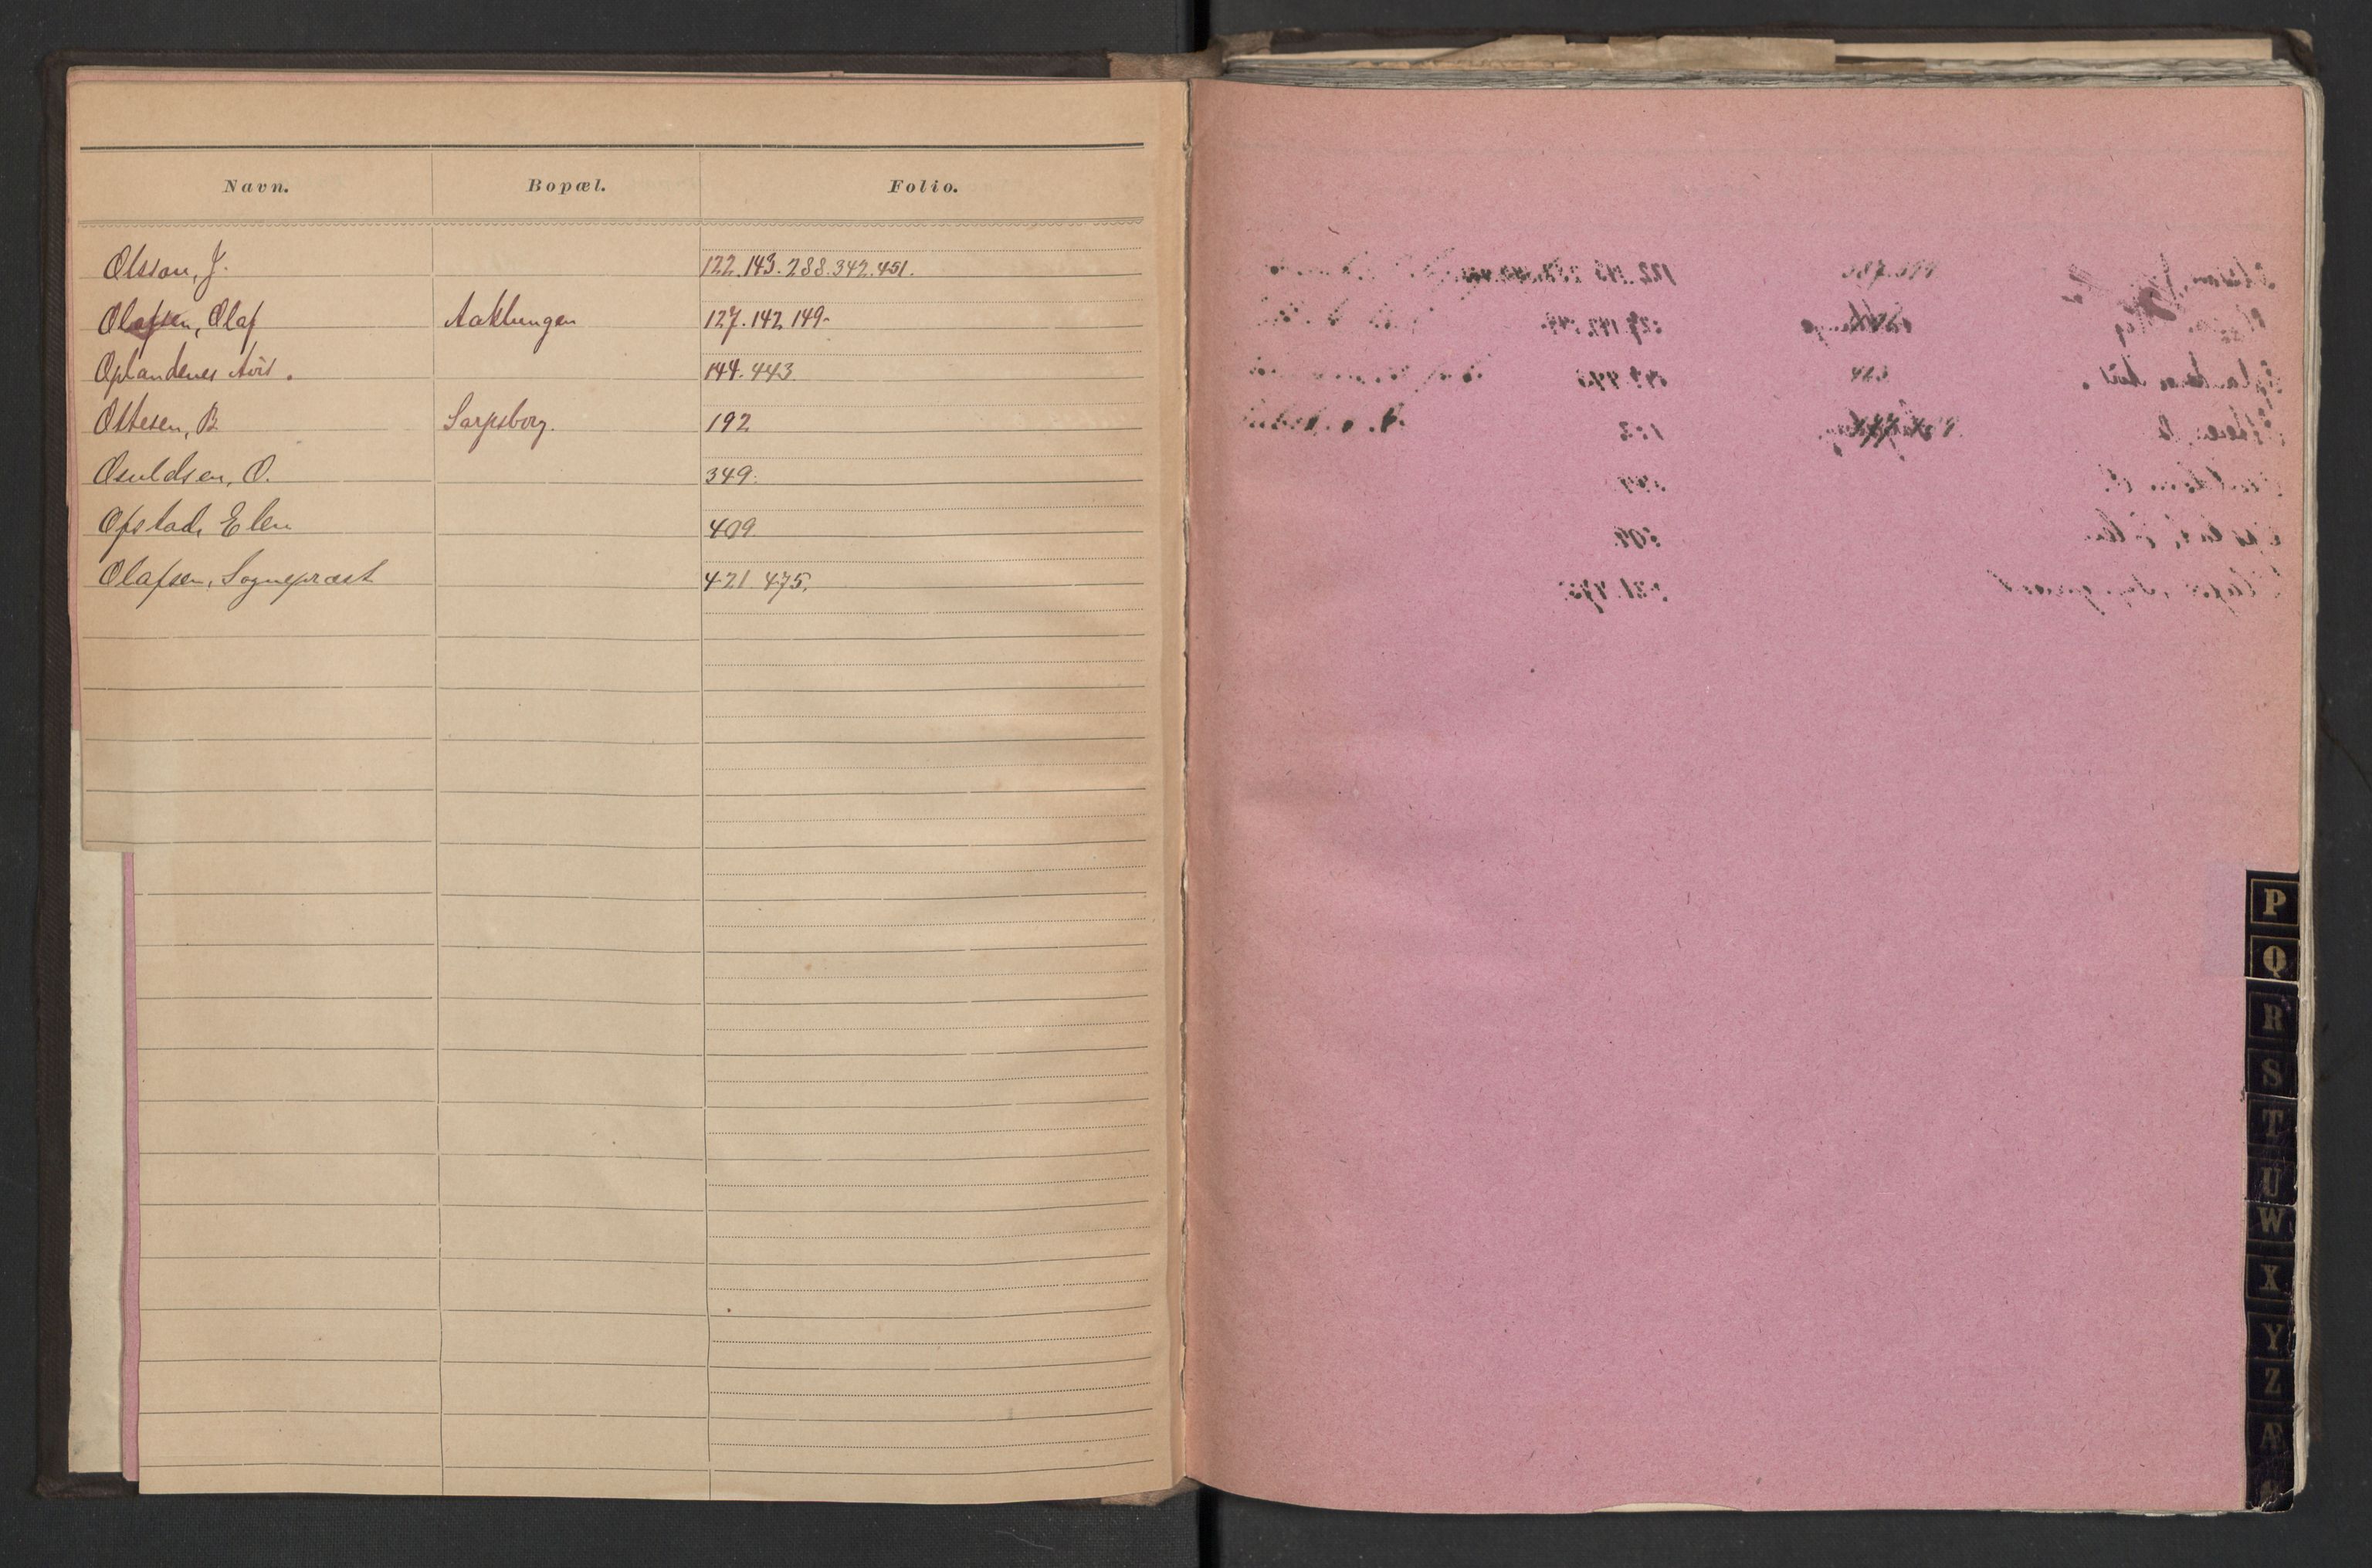 Navn. Bopæl. Folio.
Olsson, J. 122. 143. 288. 342. 451.
Olafsen, Olaf Aaklungen 127. 142 149.
Oplandenes Avis. 144. 443.
Ottesen, B. Sarpsborg. 192
Osuldsen, O. 349.
Opstad, Elen 409
Olafsen, Sognepræst 421 475.
P
Q
R
S
T
U
W
X
Y
Z
Æ